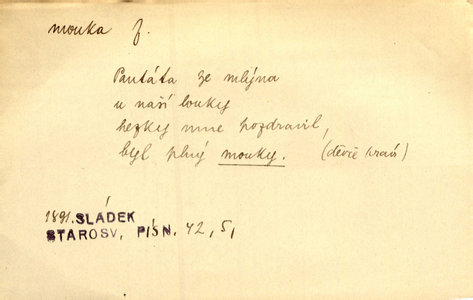 mouka f.
Pantáta ze mlýna
u naší louky
hezky mne pozdravil,
byl plný mouky. (děvče praví)
1891. SLÁDEK
STAROSV. PÍSN. 42, 5,